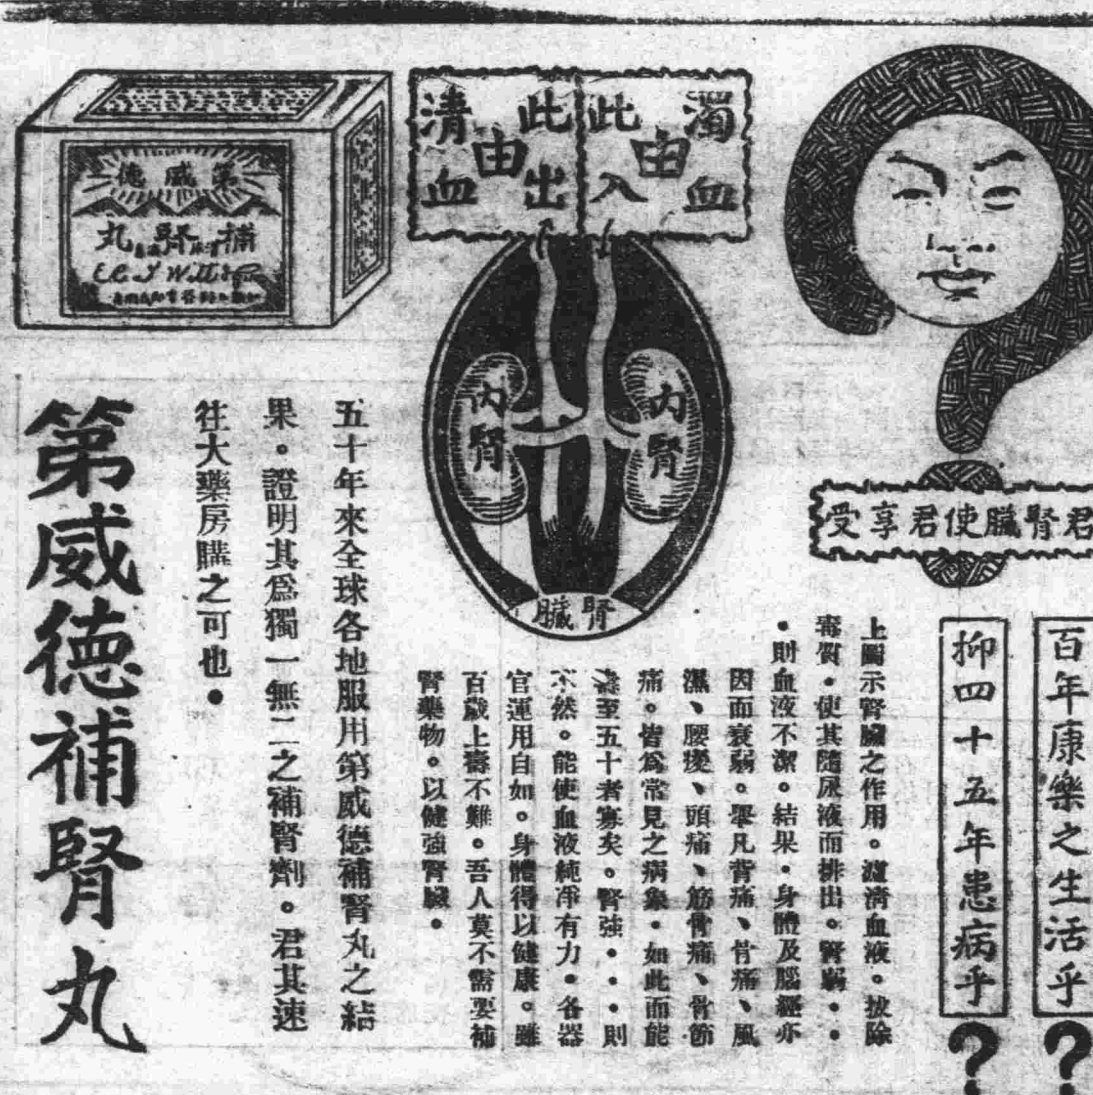 君腎臟使君享受
百年康樂之生活乎?
抑四十五年患病乎?
濁血由此入
清血由此出
內腎
內腎
腎臟
上圖示腎臟之作用。濾清血液。拔除
毒質。使其隨尿液而排出。腎弱。。
。則血液不潔。結果。身體及腦經亦
因而衰弱。舉凡背痛、骨痛、風
濕、腰痠、頭痛、筋骨痛、骨節
痛。皆爲常見之病象。如此而能
壽至五十者寡矣。腎強。。。則
不然。能使血液純淨有力。各器
官運用自如。身體得以健康。雖
百歲上壽不難。吾人莫不需要補
腎藥物。以健強腎臟。
第威德
補腎丸
E.C. De Witt & Co
五十年來全球各地服用第威德補腎丸之結
果。證明其爲獨一無二之補腎劑。君其速
往大藥房購之可也。
第威德補腎丸